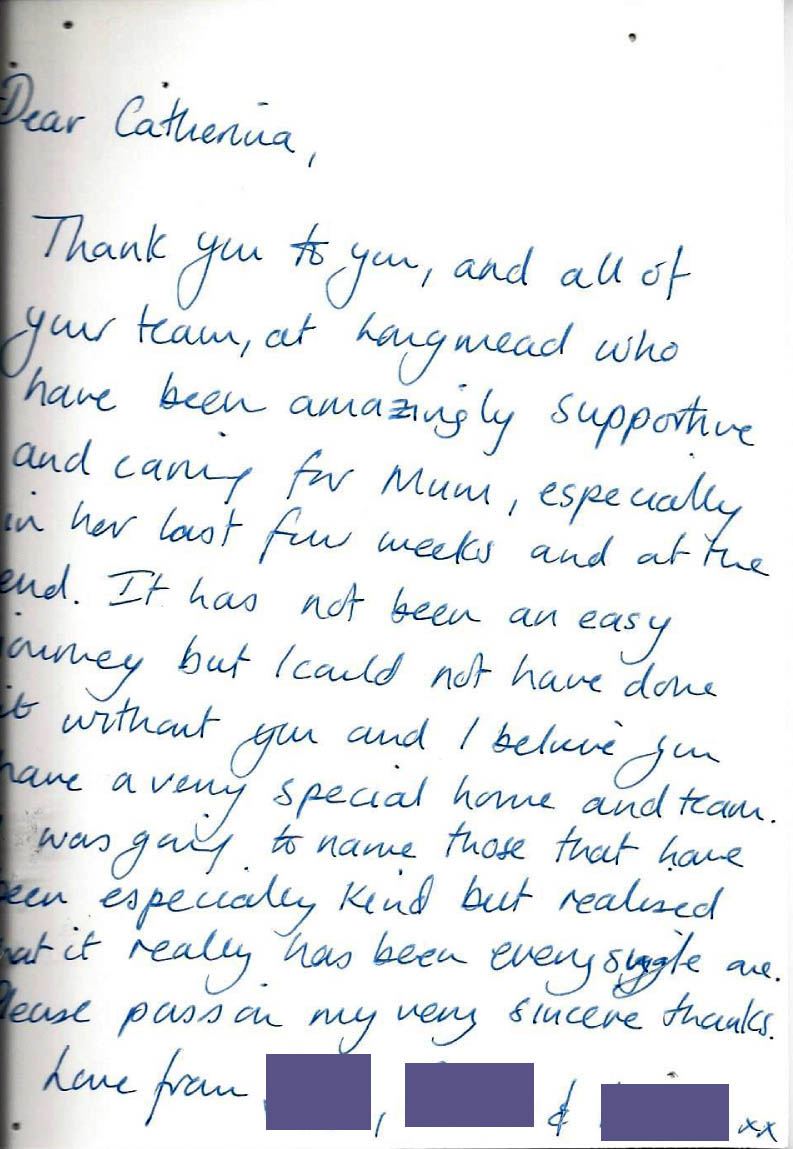 Dear Catherina,
Thank you to you, and all of
your team, at Longmead who
have been amazingly supportive
and caring for Mum, especially
in her last few weeks and at the
end. It has not been an easy
journey but I could not have done
it without you and I believe you
have a very special home and team.
I was going to name those that have
been especially kind but realised
that it really has been every single one.
Please pass on my very sincere thanks.
Love from , & xx